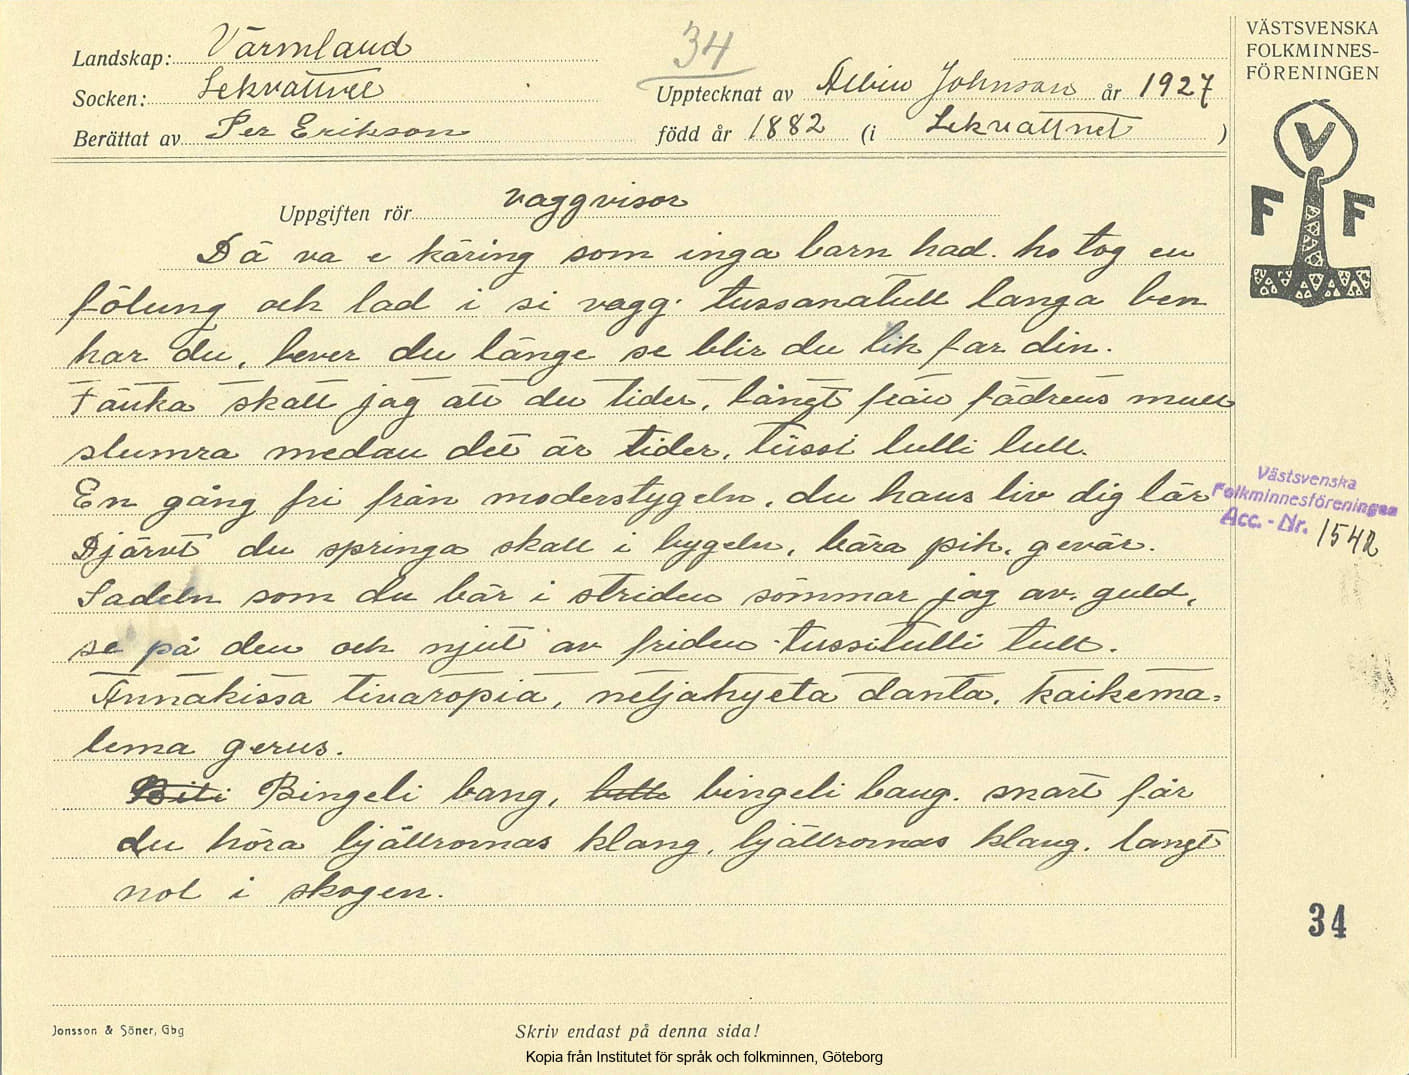 Landskap: Värmland
Socken: Lekvattnet
Berättat av Per Erikson
34
Upptecknat av Albin Johnson år 1927
född år 1882 (i Lekvattnet )
VÄSTSVENSKA
FOLKMINNES-
FÖRENINGEN
V
F F
Uppgiften rör vaggvisor
Dä va e käring som inga barn had. ho tog en
fölung och lad i si vagg. tussanatull langa ben
har du, lever du länge se blir du lik far din.
Tänka skall jag att du lider, långt från fädrens mull
slumra medan det är tider, tussi lulli lull.
En gång fri från moderstygeln, du hans liv dig lär
Djärvt du springa skall i bygeln, bära pik, gevär.
Sadeln som du bär i striden sömmar jag av guld,
se på den och njut av friden tussitulli tull.
Annakissa tivaropia, neljähyeta danta, kaikema=
lema gerus.
Biti Bingeli bang, bille bingeli bang. snart får
du höra bjällrornas klang, bjällrornas klang. langt
nol i skogen.
Västsvenska
Folkminnesföreningen
Acc.-Nr. 1542
34
Jonsson & Söner, Gbg
Skriv endast på denna sida!
Kopia från Institutet för språk och folkminnen, Göteborg